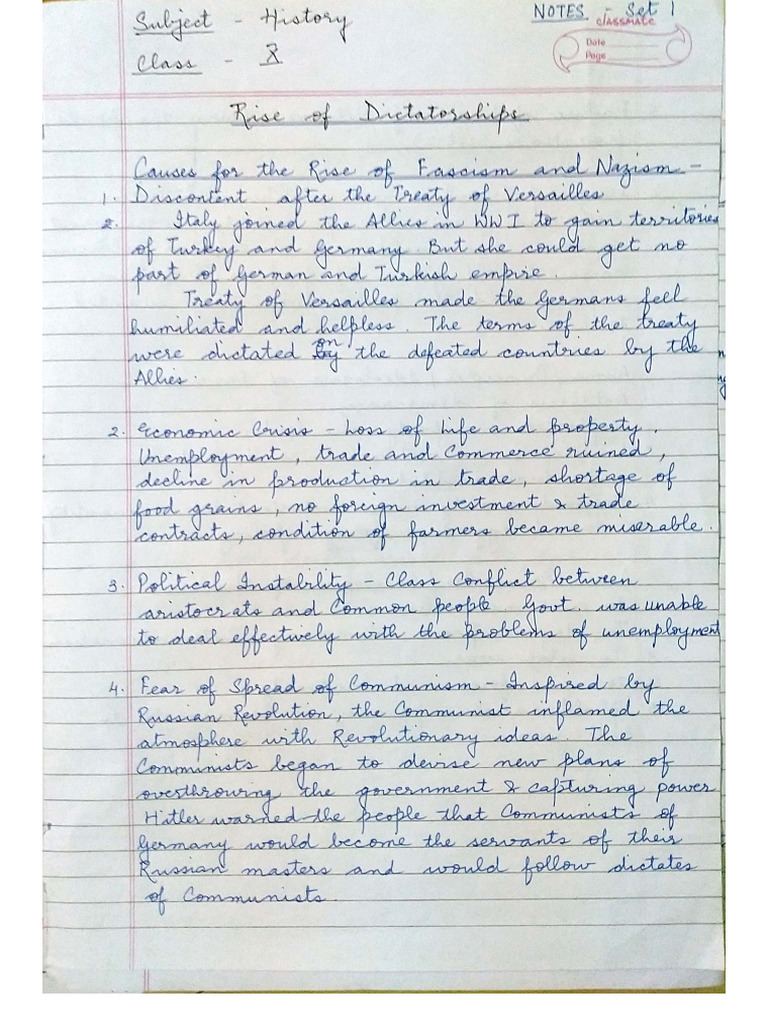 Subject - History
NOTES - Set 1
classmate
Date
Page
Class - X
Rise of Dictatorships
Causes for the Rise of Fascism and Nazism -
1. Discontent after the Treaty of Versailles
2. Italy joined the Allies in WW I to gain territories
of Turkey and Germany. But she could get no
part of German and Turkish empire.
Treaty of Versailles made the Germans feel
humiliated and helpless. The terms of the treaty
were dictated on the defeated countries by the
Allies.
2. Economic Crisis - Loss of life and property.
Unemployment, trade and Commerce ruined,
decline in production in trade, shortage of
food grains, no foreign investment & trade
contracts, condition of farmers became miserable.
3. Political Instability - Class Conflict between
aristocrats and Common people. Govt. was unable
to deal effectively with the problems of unemployment
4. Fear of Spread of Communism - Inspired by
Russian Revolution, the Communist inflamed the
atmosphere with Revolutionary ideas. The
Communists began to devise new plans of
overthrowing the government & capturing power
Hitler warned the people that Communists of
Germany would become the servants of their
Russian masters and would follow dictates
of Communists.